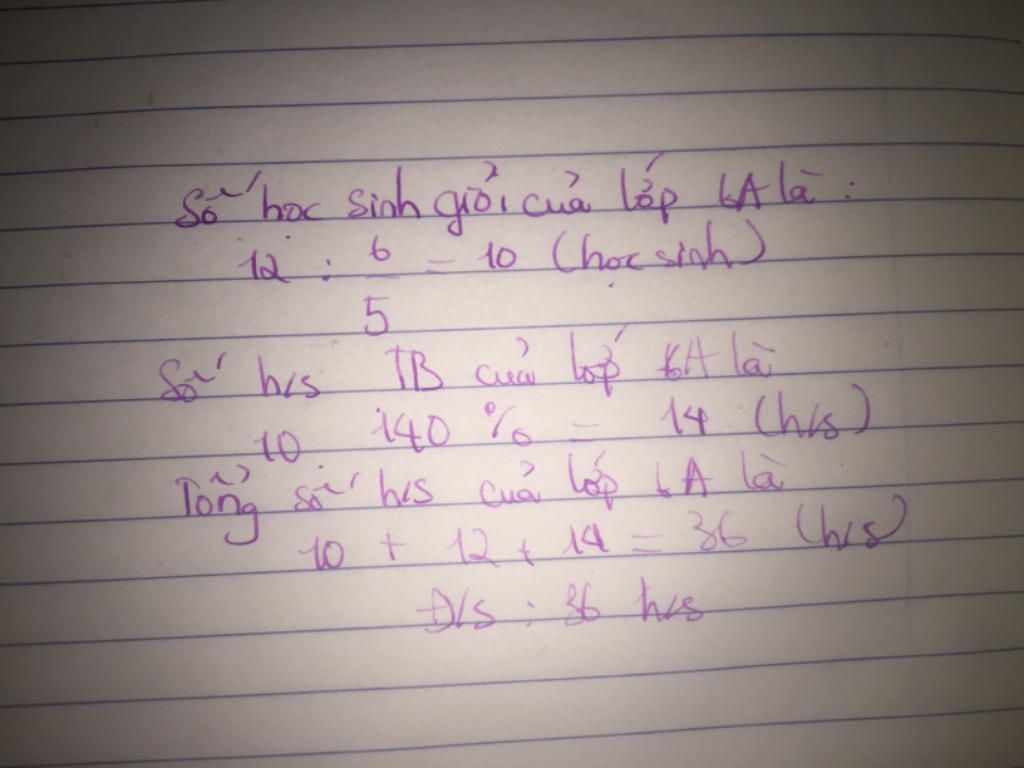 Số học sinh giỏi của lớp 6A là :
12 : 6/5 = 10 (học sinh)
Số h/s TB của lớp 6A là
10 140 % = 14 (h/s)
Tổng số h/s của lớp 6A là
10 + 12 + 14 = 36 (h/s)
Đ/s : 36 h/s